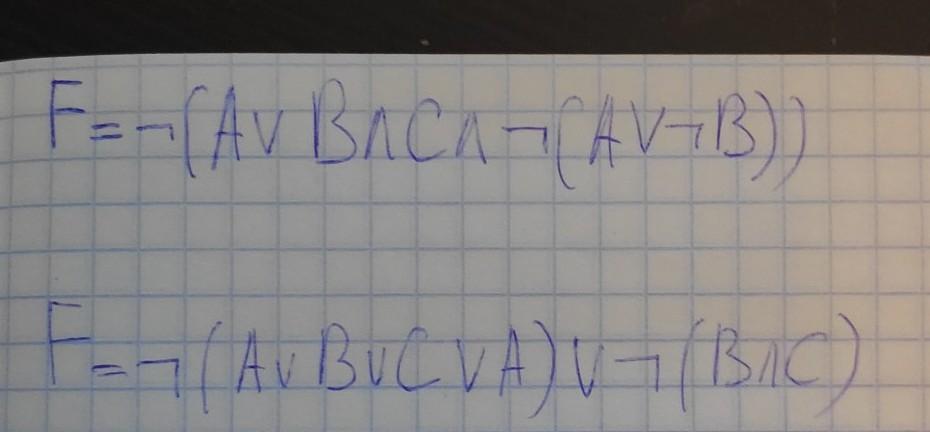 F=¬(A∨B∧C∧¬(A∨¬B))
F=¬(A∨B∨C∨A)∨¬(B∧C)